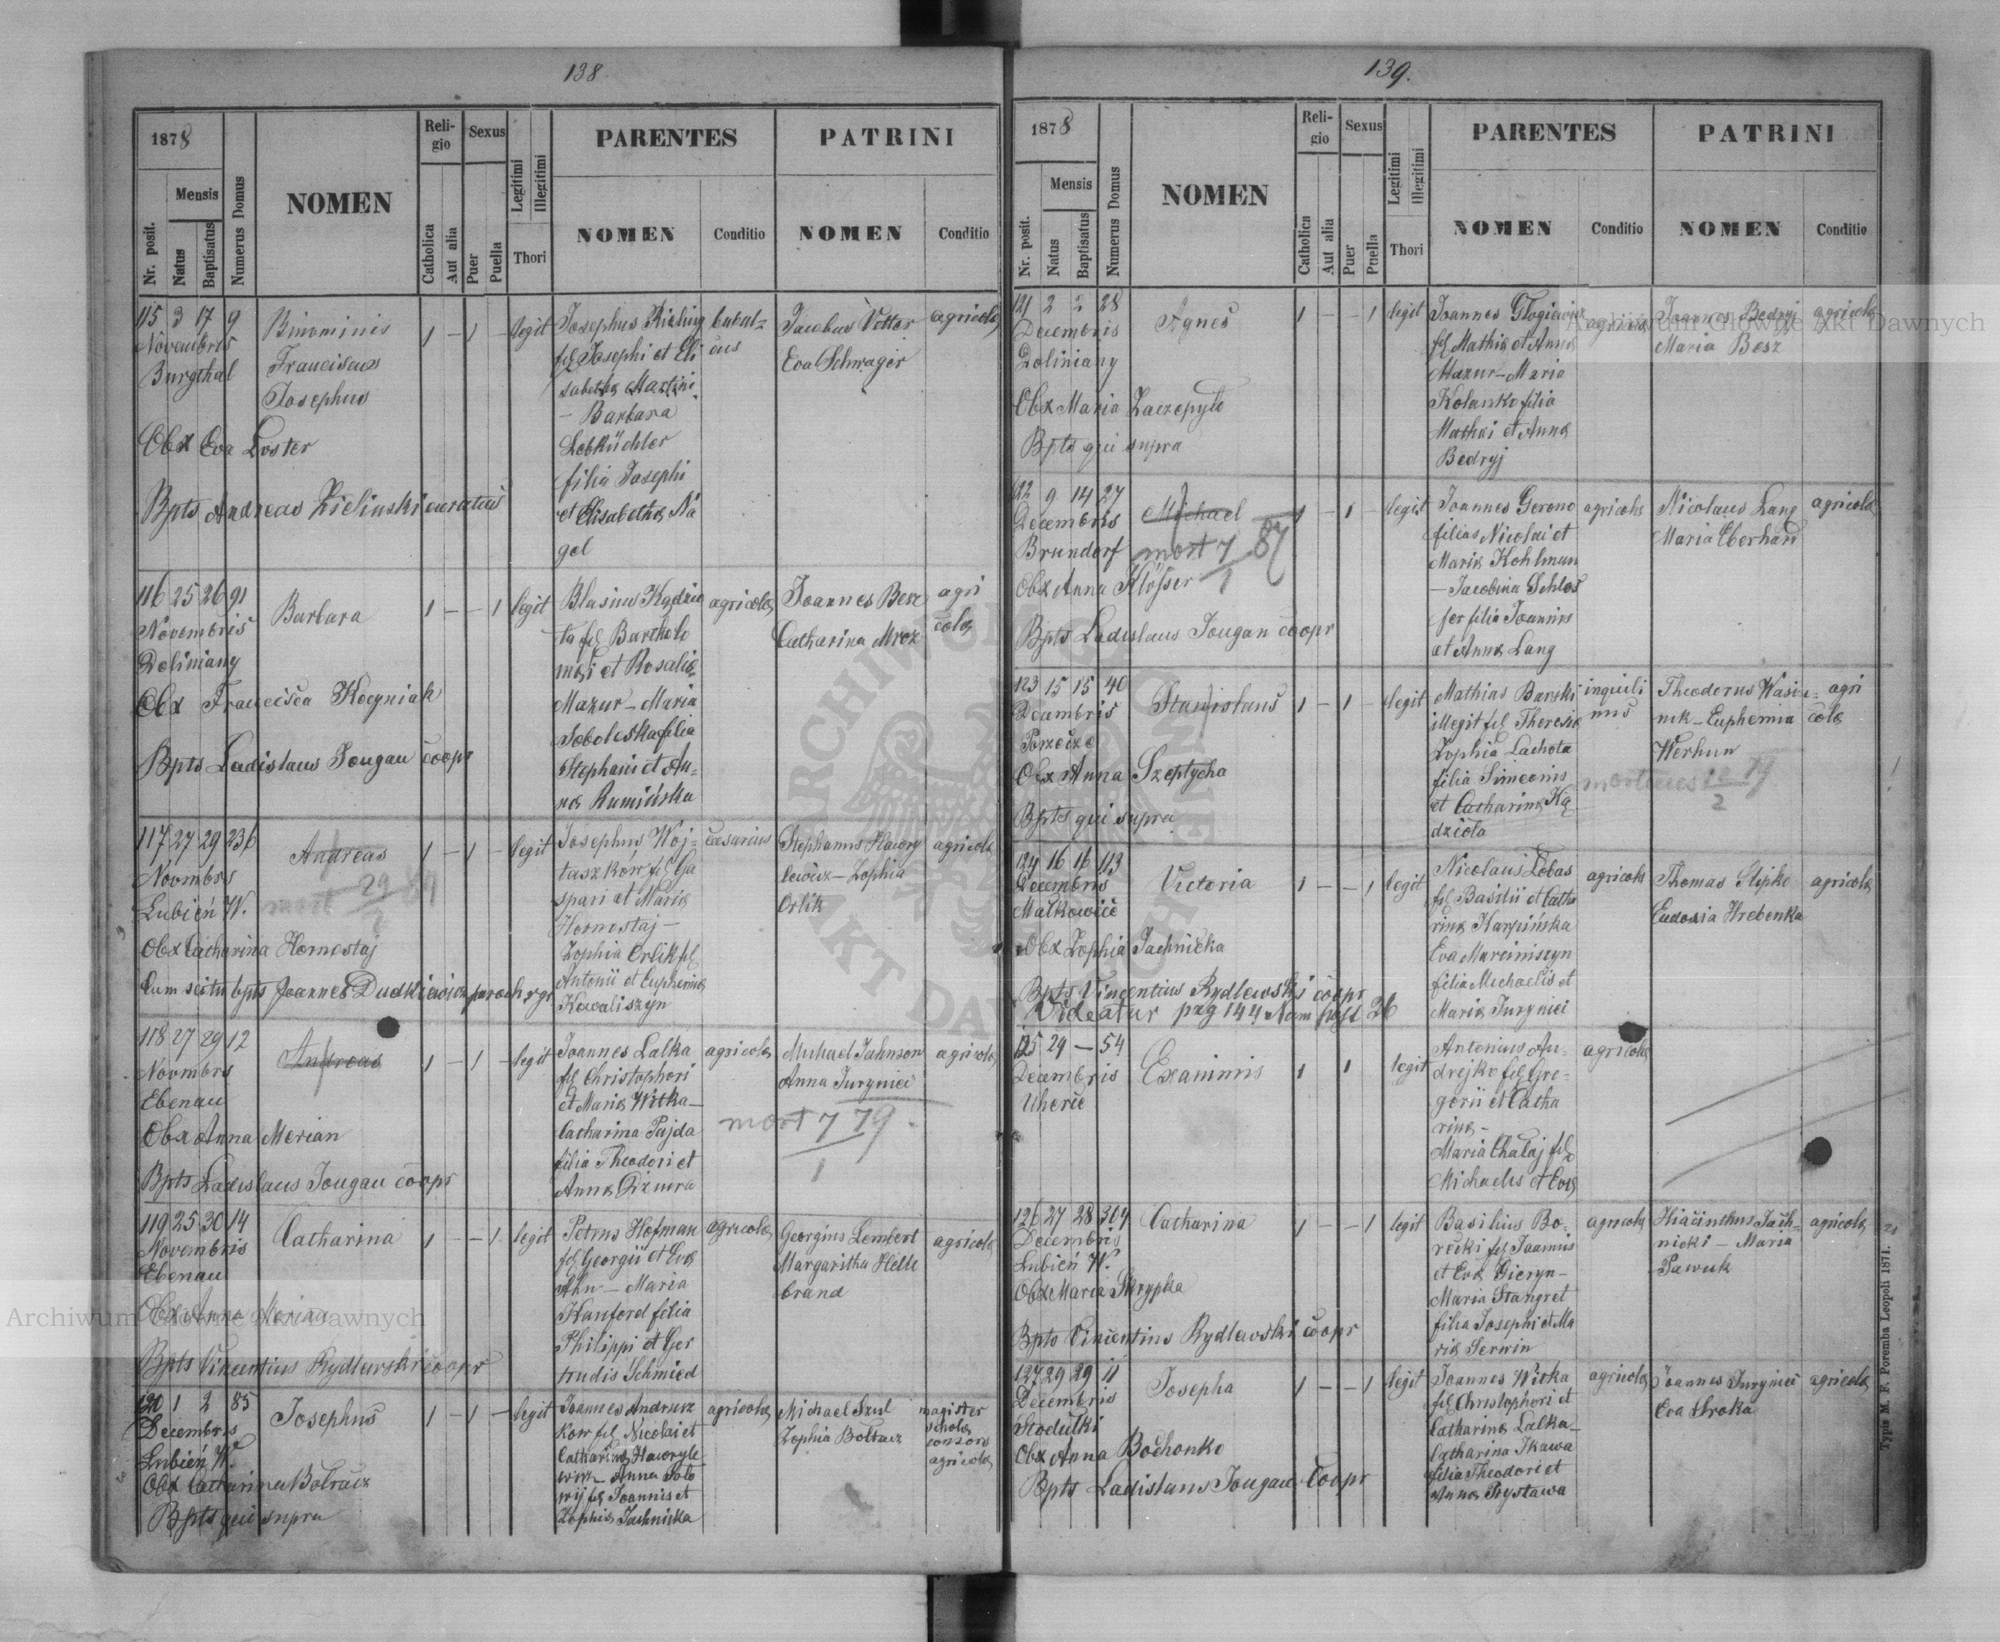 138.
1878
Nr. posit.
Mensis
Natus
Baptisatus
Numerus Domus
NOMEN
Religio
Catholica
Aut alia
Sexus
Puer
Puella
Legitimi
Illegitimi
Thori
PARENTES
NOMEN
Conditio
PATRINI
NOMEN
Conditio
115 3 17 9
Novembris
Burgthal
Binominis
Franciscus
Josephus
1 – 1 – legit
Obx Eva Loster
Bpts Andreas Zielinski curatus
Josephus
fil Josephi et Eli
sabetha Martini
– Barbara
Lebküchler
filia Josephi
et Elisabetha Na
gel
Jacobus Vetter
Eva Schwager
agricola
116 25 26 91
Novembris
Doliniany
Barbara
1 – – 1 legit
Obx Francisca Kocyniak
Bpts Ladislaus Jougan coopr
Blasius Kądzio
ta fil Bartholo
mei et Rosalia
Mazur – Maria
Soboleska filia
Stephani et An-
na Rumińska
agricola
Joannes Besz
Catharina Mroz
agri
cola
117 27 29 236
Novmbrs
Lubień W.
Andreas
mort 29
1 – 1 – legit
Obx Catharina Hornostaj
Cum scitu bpts Joannes Dudkiewicz paroch r gr
Josephus Woj-
taszków fil Ga
spari et Maria
Hornostaj –
Zophia Orlik fil
Antonii et Euphemia
Kowaliszyn
caesarius
Stephanus Hawry
lewicz – Zophia
Orlik
agricola
118 27 29 12
Novmbrs
Ebenau
Andreas
1 – 1 – legit
Obx Anna Merian
Bpts Ladislaus Jougan coopr
Joannes Lalka
fil Christophori
et Maria Witka –
Catharina Pajda
filia Theodori et
Anna
agricola
Michael Jahnson
Anna Juryniec
agricola
mort 7 79
1
119 25 30 14
Novembris
Ebenau
Catharina
1 – – 1 legit
Obx Anna Merian
Bpts Vincentius Rydlewski coopr
Petrus Hofman
fil Georgii et Eva
Ahn – Maria
Kanford filia
Philippi et Ger
trudis Schmied
agricola
Georgius Lembert
Margaritha Helle
brand
agricola
120 1 2 85
Decembris
Lubień W.
Josephus
1 – 1 – legit
Obx Catharina Boltacz
Bpts qui supra
Joannes Andrusz
kow fil Nicolai et
Catharina Hawryle
wicz – Anna Solo
wij fil Joannis et
Zophia Jachnicka
agricola
Michael Szul
Zophia Boltacz
magister
schola
consors
agricola
139.
1878
Nr. posit.
Mensis
Natus
Baptisatus
Numerus Domus
NOMEN
Religio
Catholica
Aut alia
Sexus
Puer
Puella
Legitimi
Illegitimi
Thori
PARENTES
NOMEN
Conditio
PATRINI
NOMEN
Conditio
121 2 2 28
Decembris
Doliniany
Agnes
1 – – 1 legit
Obx Maria Zaczepyło
Bpts qui supra
Joannes Głogiewicz
fil Mathia et Anna
Mazur – Maria
Kolanko filia
Mathei et Anna
Bedryj
agricola
Joannes Bedryj
Maria Besz
agricola
122 9 14 27
Decembris
Brundorf
Michael
mort 7 87
1
1 – 1 – legit
Obx Anna Klösser
Bpts Ladislaus Jougan coopr
Joannes Gerono
filius Nicolai et
Maria Kohlman
– Jacobina Schlos
ser filia Joannis
et Anna Lang
agricola
Nicolaus Lang
Maria Eberhard
agricola
123 15 15 40
Decembris
Porzecze
Stanislaus
1 – 1 – legit
Obx Anna Szeptycka
Bpts qui supra
Mathias Barski
illegit fil Theresia
Zophia Lachota
filia Simeonis
et Catharina Ką
dzioła
inquili
nus
Theodorus Wasiu-
nyk – Euphemia
Werhun
agri
cola
mortuus 12 79
2
124 16 16 113
Decembris
Małkowice
Victoria
1 – – 1 legit
Obx Zophia Jachnicka
Bpts Vincentius Rydlewski coopr
Videatur pag 144 Num post 26
Nicolaus Łobas
fil Basilii et Catha
rina Karpińska
Eva Marciniszyn
filia Michaelis et
Maria Juryniec
agricola
Thomas Slipko
Eudoxia Hrebenka
agricola
125 29 – 54
Decembris
Uherce
Exanimis
1 1 legit
Antonius An-
drejko fil Gre-
gorii et Catha
rina –
Maria Chałaj fil
Michaelis et Eva
agricola
126 27 28 304
Decembris
Lubień W.
Catharina
1 – – 1 legit
Obx Maria Skrypka
Bpts Vincentius Rydlewski coopr
Basilius Bo-
recki fil Joannis
et Eva Gieryn –
Maria Stangret
filia Josephi et Ma
ria Serwin
agricola
Hiacinthus Jach-
nicki – Maria
Pawuk
agricola
127 29 29 11
Decembris
Stodulki
Josepha
1 – – 1 legit
Obx Anna Bochonko
Bpts Ladislaus Jougan Coopr
Joannes Witka
fil Christophori et
Catharina Lalka –
Catharina Tkawa
filia Theodori et
Anna Prystawa
agricola
Joannes Juryniec
Eva Sroka
agricola
Typis M. F. Poremba Leopoli 1871.
Archiwum Główne Akt Dawnych
Archiwum Główne Akt Dawnych
ARCHIWUM GŁÓWNE
AKT DAWNYCH